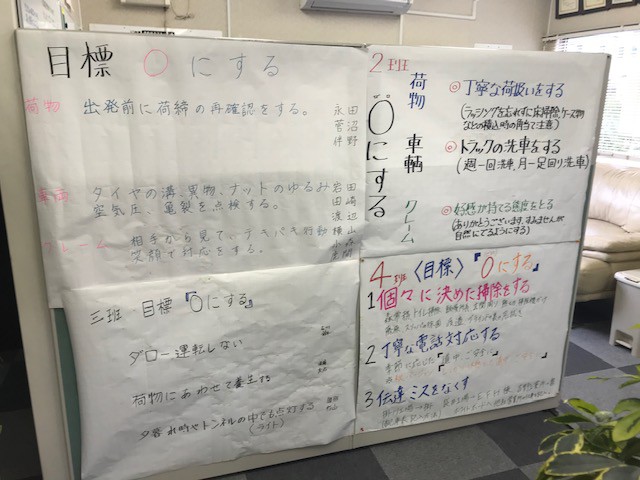 目標 0にする
荷物 出発前に荷締の再確認をする。 永田
菅沼
伴野
車両 タイヤの溝、異物、ナットのゆるみ 岩田
空気圧、亀裂を点検する。 田崎
渡辺
クレーム 相手から見て、テキパキ行動 横山
笑顔で対応をする。 小森
2班
0にする
荷物 車輌 クレーム
◎丁寧な荷扱いをする
(ラッシングを忘れずに床掃除、ケース物
などの積込時の角当て注意)
◎トラックの洗車をする
(週一回洗車、月一足回り洗車)
◎好感が持てる態度をとる
(ありがとうございます、すみませんが
自然にでるようにする)
三班 目標『0にする』
ダロー運転しない
荷物にあわせて養生する
夕暮れ時やトンネルの中でも点灯する
(ライト)
4班〈目標〉『0にする』
1 個々に決めた掃除をする
2 丁寧な電話対応する
3 伝達ミスをなくす